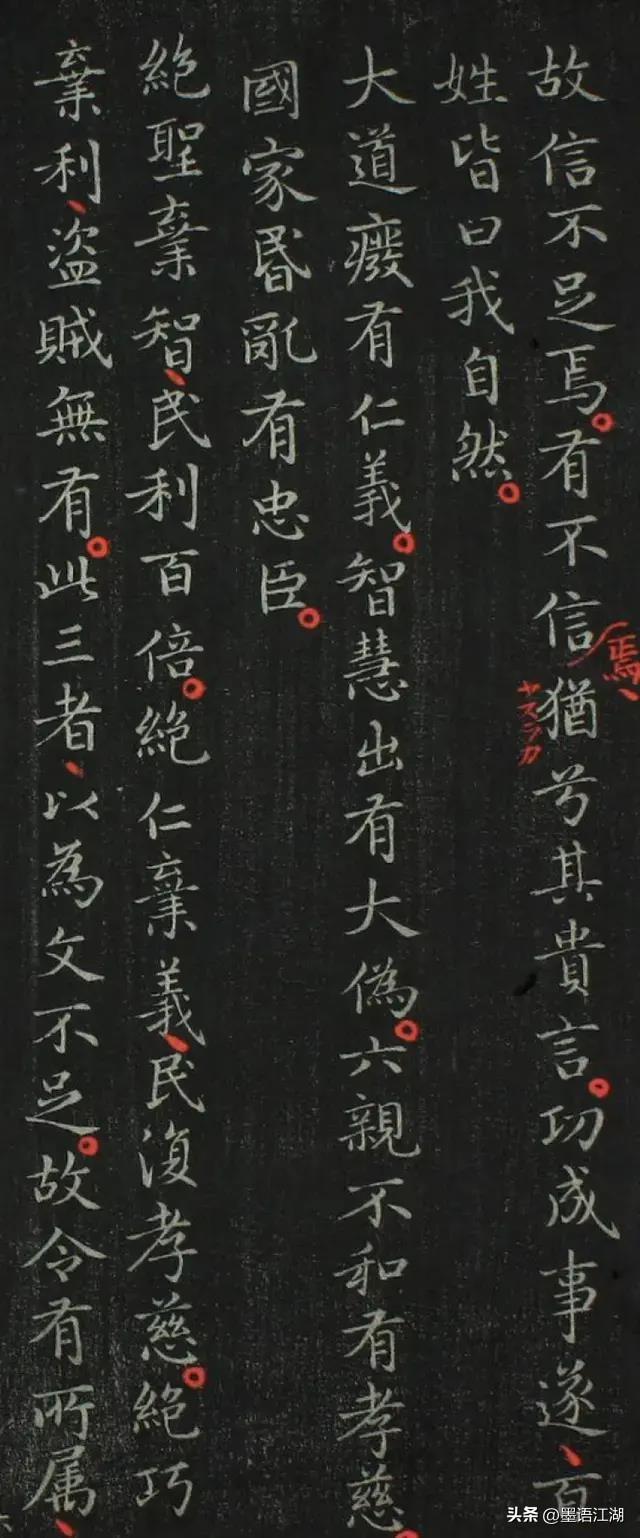 故信不足焉。有不信猶兮其貴言。功成事遂、百
焉、
ヤスラカ
姓皆曰我自然。
大道癈有仁義。智慧出有大偽。六親不和有孝慈。
國家昏亂有忠臣。
絶聖棄智、民利百倍。絶仁棄義、民復孝慈。絶巧
棄利、盜賊無有。此三者、以為文不足。故令有所属、
头条 @墨语江湖